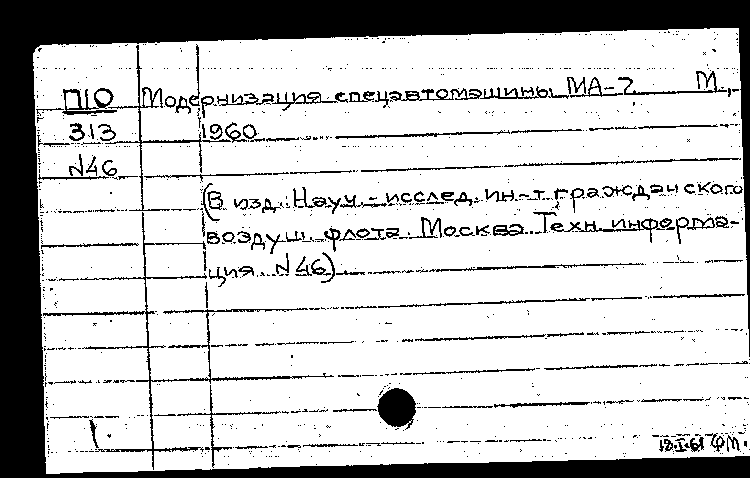 П10 Модернизация спецавтомашины МА-7. М.,
313 1960
N46
(В изд.: Науч.-исслед. ин-т гражданского
воздуш. флота. Москва. Техн. информа-
ция. N46).
18.I.61 ФМ.